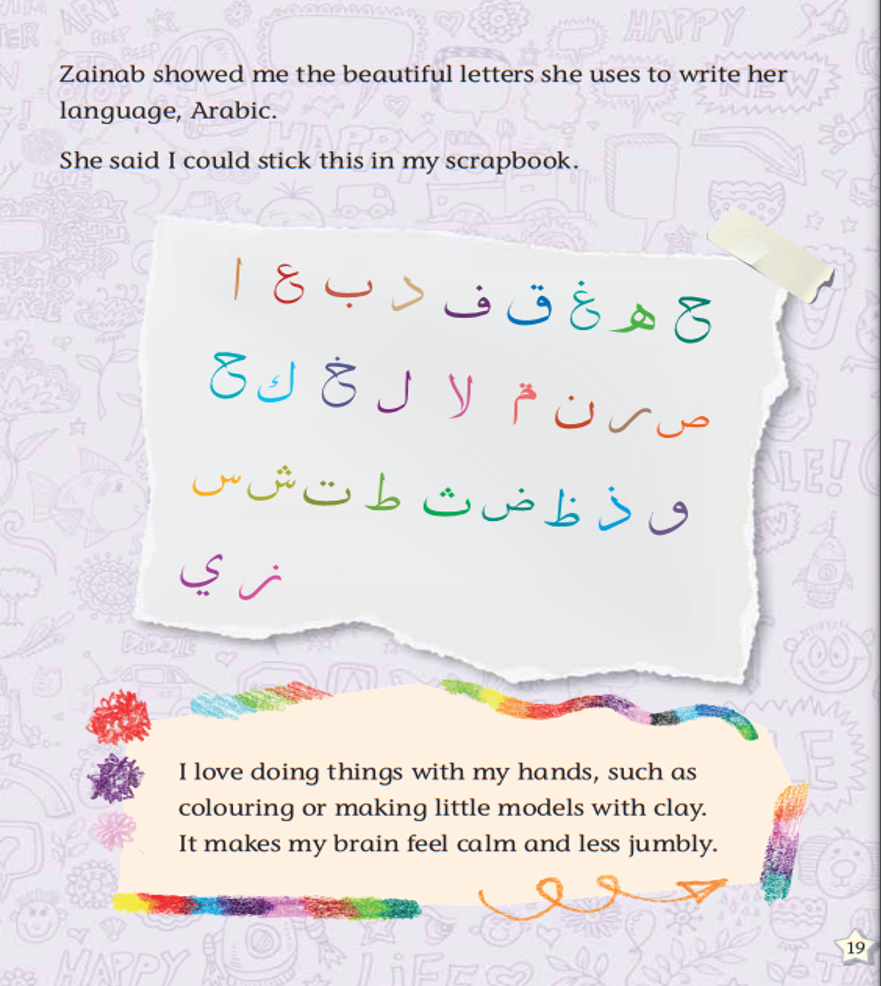 Zainab showed me the beautiful letters she uses to write her
language, Arabic.
She said I could stick this in my scrapbook.
ج ه غ ق ف د ب ع ا
ص ر ن م لا ل خ ك ح
و ذ ظ ض ث ط ت ش س
ز ي
I love doing things with my hands, such as
colouring or making little models with clay.
It makes my brain feel calm and less jumbly.
19